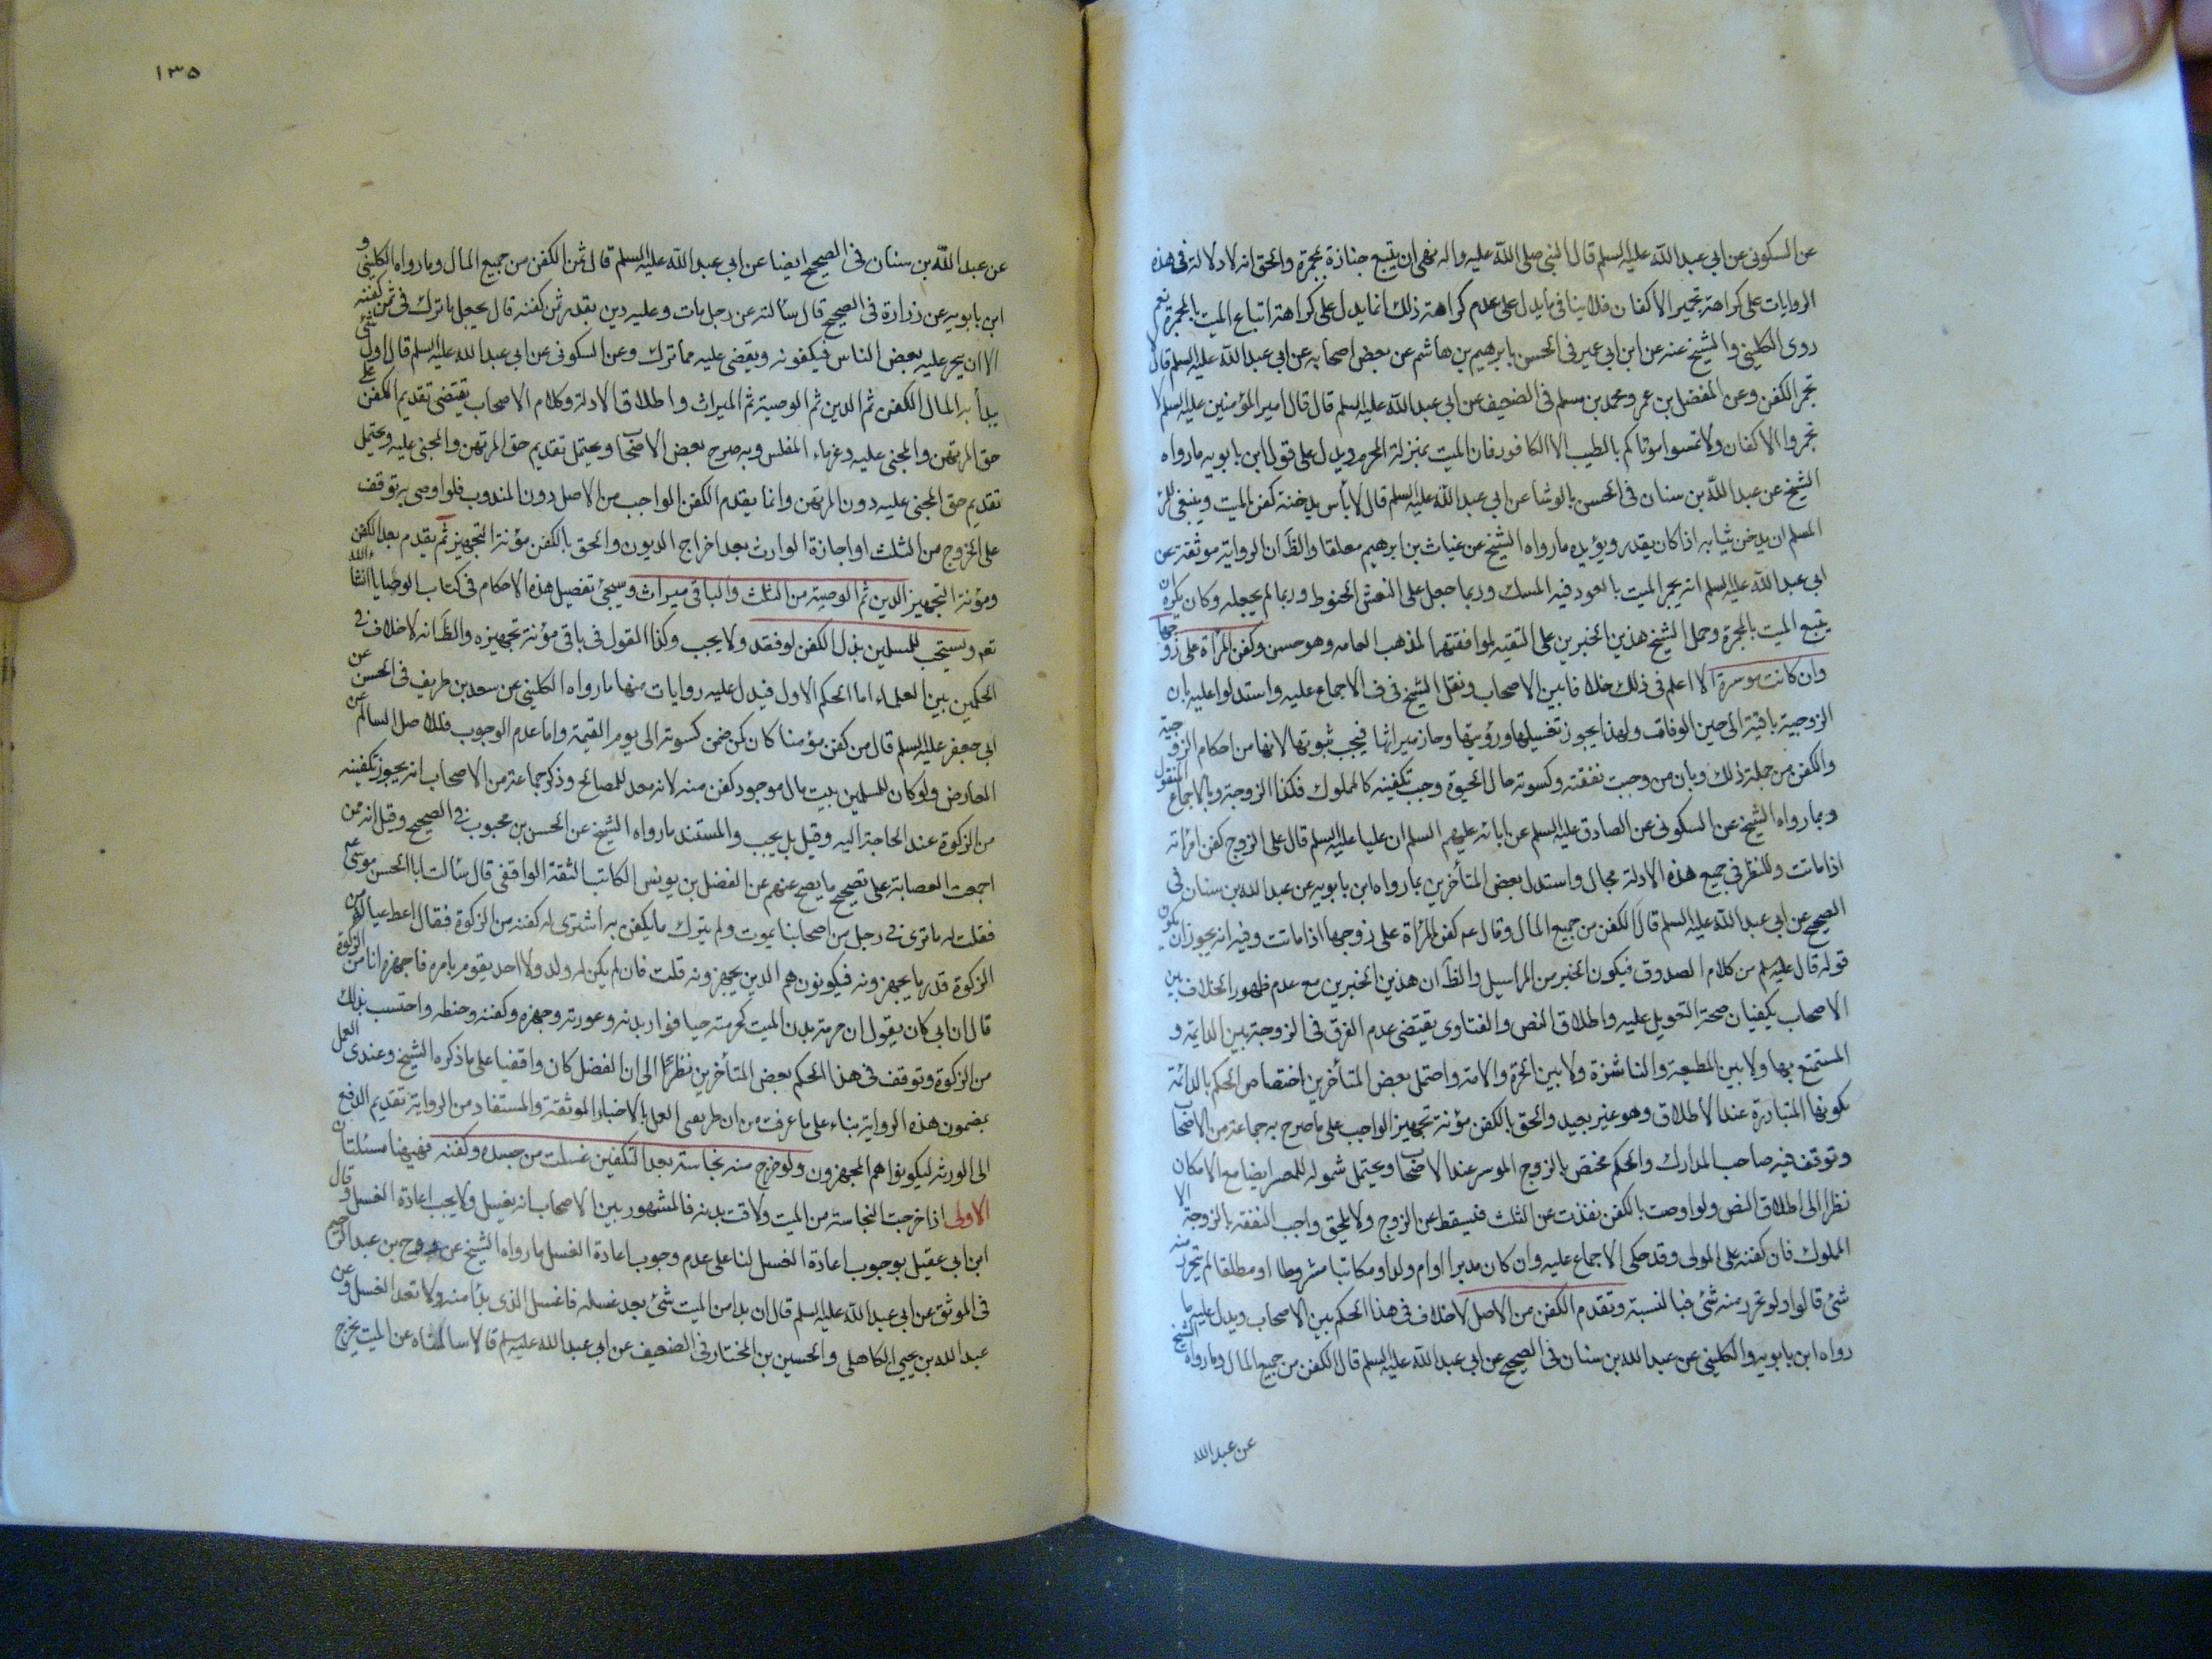 عن السكونى عن ابي عبد الله عليه السلم قال النبى صلى الله عليه واله نهى ان يتبع جنازة بمجمرة والحق انه لا دلالة فى هذه
الروايات على كراهة تجمير الاكفان فلا ينافى ما يدل على عدم كراهته ذلك انما يدل على كراهة اتباع الميت بالمجمرة نعم
روى الكلينى والشيخ عنه عن ابن ابى عمير فى الحسن بابرهيم بن هاشم عن بعض اصحابه عن ابى عبد الله عليه السلم قال لا
تجمر الكفن وعن المفضل بن عمر ومحمد بن مسلم فى الضعيف عن ابى عبد الله عليه السلم قال قال امير المؤمنين عليه السلم لا
تجمروا الاكفان ولا تمسوا موتاكم بالطيب الا الكافور فان الميت بمنزلة المحرم ويدل على قول ابن بابويه ما رواه
الشيخ عن عبد الله بن سنان فى الحسن بالوشا عن ابى عبد الله عليه السلم قال لا بأس بدخنة كفن الميت وينبغى للمرء
المسلم ان يدخن ثيابه اذا كان يقدر ويؤيده ما رواه الشيخ عن غياث بن ابرهيم معلقا والظَ ان الرواية موثقة عن
ابى عبد الله عليه السلم انه يجمر الميت بالعود فيه المسك وربما جعل على النعش الحنوط وربما لم يجعله وكان يكره ان
يتبع الميت بالمجمرة وحمل الشيخ هذين الخبرين على التقية لموافقتهما لمذهب العامه وهو حسن وكفن المرأة على زوجها
وان كانت موسرة لا اعلم فى ذلك خلافا بين الاصحاب ونقل الشيخ فى ف الاجماع عليه واستدلوا عليه بان
الزوجية باقية الى حين الوفاة ولهذا يجوز تغسيلها ورؤيتها وحاز ميراثها فيجب ثبوتها لانها من احكام الزوجية
والكفن من جملة ذلك وبان من وجبت نفقته وكسوته حال الحيوة وجب تكفينه كالمملوك فكذا الزوجة وبالاجماع المنقول
وبما رواه الشيخ عن السكونى عن الصادق عليه السلم عن ابائه عليهم السلم ان عليا عليه السلم قال على الزوج كفن امرأته
اذا ماتت وللنظر فى جميع هذه الادلة مجال واستدل بعض المتأخرين بما رواه ابن بابويه عن عبد الله بن سنان فى
الصحيح عن ابى عبد الله عليه السلم قال الكفن من جميع المال وقال عم كفن المرأة على زوجها اذا ماتت وفيه انه يجوز ان يكون
قوله قال عليه السلم من كلام الصدوق فيكون الخبر من المراسيل والظَ ان هذين الخبرين مع عدم ظهور الخلاف بين
الاصحاب يكفيان صحة التعويل عليه واطلاق النص والفتاوى يقتضى عدم الفرق فى الزوجة بين الدايمة و
المستمتع بها ولا بين المطيعة والناشزة ولا بين الحرة والامة واحتمل بعض المتأخرين اختصاص الحكم بالدائمة
لكونها المتبادرة عند الاطلاق وهو غير بعيد والحق بالكفن مؤنة تجهيز الواجب على ما صرح به جماعة من الاصحاب
وتوقف فيه صاحب المدارك والحكم مختص بالزوج الموسر عند الاصحاب ويحتمل شموله للمعسر ايضا مع الامكان
نظرا الى اطلاق النص ولو اوصت بالكفن نفذت عن الثلث فيسقط عن الزوج ولا يلحق واجب النفقة بالزوجة الا
المملوك فان كفنه على المولى وقد حكى الاجماع عليه وان كان مدبرا او ام ولد او مكاتبا مشروطا او مطلقا لم يتحرر منه
شئ قالوا ولو تحرر منه شئ فبالنسبة وتقدم الكفن من الاصل لا خلاف فى هذا الحكم بين الاصحاب ويدل عليه ما
رواه ابن بابويه والكلينى عن عبد الله بن سنان فى الصحيح عن ابى عبد الله عليه السلم قال الكفن من جميع المال وما رواه الشيخ
عن عبد الله
١٣٥
عن عبد الله بن سنان فى الصحيح ايضا عن ابى عبد الله عليه السلم قال ثمن الكفن من جميع المال وما رواه الكلينى و
ابن بابويه عن زرارة فى الصحيح قال سألته عن رجل مات وعليه دين بقدر ثمن كفنه قال يجعل ما ترك فى ثمن كفنه
الا ان يتجر عليه بعض الناس فيكفونه ويقضى عليه مما ترك وعن السكونى عن ابى عبد الله عليه السلم قال اول شئ
يبدأ به المال الكفن ثم الدين ثم الوصية ثم الميراث واطلاق الادلة وكلام الاصحاب يقتضى تقديم الكفن على
حق المرتهن والمجنى عليه وغرماء المفلس وبه صرح بعض الاصحاب ويحتمل تقديم حق المرتهن والمجنى عليه ويحتمل
تقديم حق المجنى عليه دون المرتهن وانما يقدم الكفن الواجب من الاصل دون المندوب فلو اوصى به توقف
على الخروج من الثلث او اجازة الوارث بعد اخراج الديون والحق بالكفن مؤنة التجهيز ثم يقدم بعد الكفن
ومؤنة التجهيز الدين ثم الوصية من الثلث والباقى ميراث وسيجئ تفصيل هذه الاحكام فى كتاب الوصايا انشاء الله
تعم ويستحب للمسلمين بذل الكفن لو فقد ولا يجب وكذا القول فى باقى مؤنة تجهيزه والظَ انه لا خلاف فى
الحكمين بين العلماء اما الحكم الاول فيدل عليه روايات منها ما رواه الكلينى عن سعد بن طريف فى الحسن عن
ابى جعفر عليه السلم قال من كفن مؤمنا كان كمن ضمن كسوته الى يوم القيمة واما عدم الوجوب فللاصل السالم عن
المعارض ولو كان للمسلمين بيت مال موجود كفن منه لانه معد للمصالح وذكر جماعة من الاصحاب انه يجوز تكفينه
من الزكوة عند الحاجة اليه وقيل بل يجب والمستند ما رواه الشيخ عن الحسن بن محبوب فى الصحيح وقيل انه ممن
اجمعت العصابة على تصحيح ما يصح عنهم عن الفضل بن يونس الكاتب الثقة الواقفى قال سألت ابا الحسن موسى عم
فقلت له ما ترى فى رجل من اصحابنا يموت ولم يترك ما يكفن به اشترى له كفنه من الزكوة فقال اعط عياله من
الزكوة قدر ما يجهزونه فيكونون هم الذين يجهزونه قلت فان لم يكن له ولد ولا احد يقوم بامره فاجهزه انا من الزكوة
قال ان ابى كان يقول ان حرمة بدن الميت كحرمته حيا فوار بدنه وعورته وجهزه وكفنه وحنطه واحتسب بذلك
من الزكوة وتوقف فى هذا الحكم بعض المتأخرين نظرا الى ان الفضل كان واقفيا على ما ذكره الشيخ وعندى العمل
بمضمون هذه الرواية بناء على ما عرفت من ان طريقى العمل بالاخبار الموثقة والمستفاد من الرواية تقديم الدفع
الى الورثه ليكونوا هم المجهزون ولو خرج منه نجاسة بعد التكفين غسلت من جسده وكفنه فهيهنا مسئلتان
الاولى اذا خرجت النجاسة من الميت ولاقت بدنه فالمشهور بين الاصحاب انه يغسل ولا يجب اعادة الغسل وقال
ابن ابى عقيل بوجوب اعادة الغسل لنا على عدم وجوب اعادة الغسل ما رواه الشيخ عن روح بن عبد الرحيم
فى الموثق عن ابى عبد الله عليه السلم قال ان بدا من الميت شئ بعد غسله فاغسل الذى بدأ منه ولا تعد الغسل وعن
عبد الله بن يحيى الكاهلى والحسين بن المختار فى الضعيف عن ابى عبد الله عليه السلم قالا سالناه عن الميت يخرج